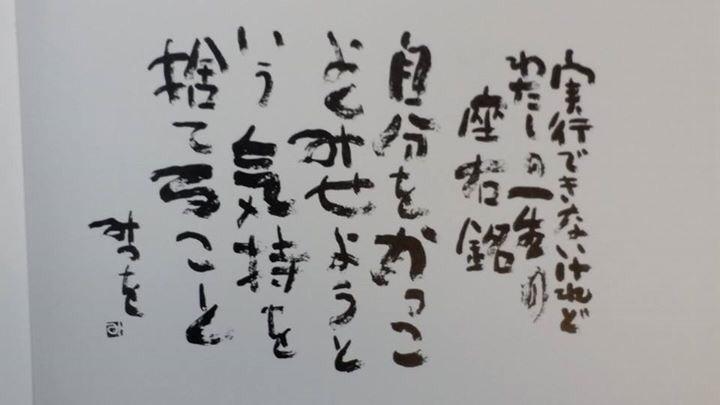 実行できないけれど
わたしの一生の
座右銘
自分をかっこ
よくみせようと
いう気持を
捨てること
みつを